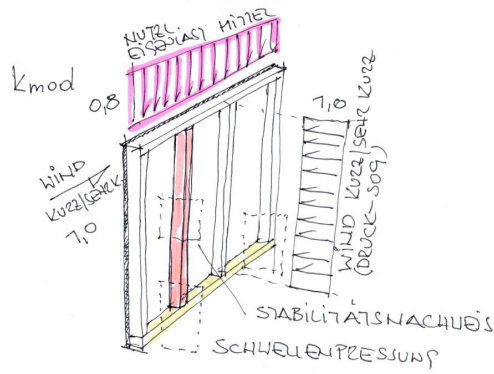 NUTZL. MITTEL
EISENLAST
kmod
0,8
1,0
WIND
KURZ/SEHR K.
1,0
WIND KURZ/SEHR KURZ
(DRUCK-SOG)
STABILITÄTSNACHWEIS
SCHWELLENPRESSUNG